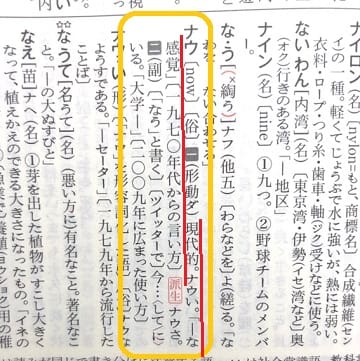 ナイロン〔nylon=もと、商標名〕合成繊維セン
イの一種。軽くて、じょうぶで水に強いが、熱には弱い。
衣料・ロープ・つり糸・歯車・軸〔ジク〕受けなどに使う。
ないわん[内湾]〔名〕〔東京湾・伊勢〔イセ〕湾など〕奥
〔オク〕行きのある湾。「―地区」
ナイン〔名〕〔nine〕①九つ。②野球チームのメンバ
な・う[(×綯う)]ナフ(他五)〔わらなどを〕よく縒る。「な
わを― ない合わせる
ナウ〔now〕〔俗〕一(形動ダ)現代的。ナウい。「―な
感覚」〔一九七〇年代からの言い方〕派生ナウさ。
二(副)〔「なう」と書く〕〔ツイッターで〕今?…(して)い
る。「大学―」〔二〇〇九年に広まった使い方〕
ナウ・い(形)
ようすである。「―セーター」〔一九七九年から流行した
ことば〕
なうて[名うて](名)〔悪い方に〕有名なこと。著名なこ
と。「―の大ぬすびと」
なえ[苗]ナヘ(名)①芽を出した植物がすこし大きく
なって、植えかえのできる大きさになったもの。「イネの